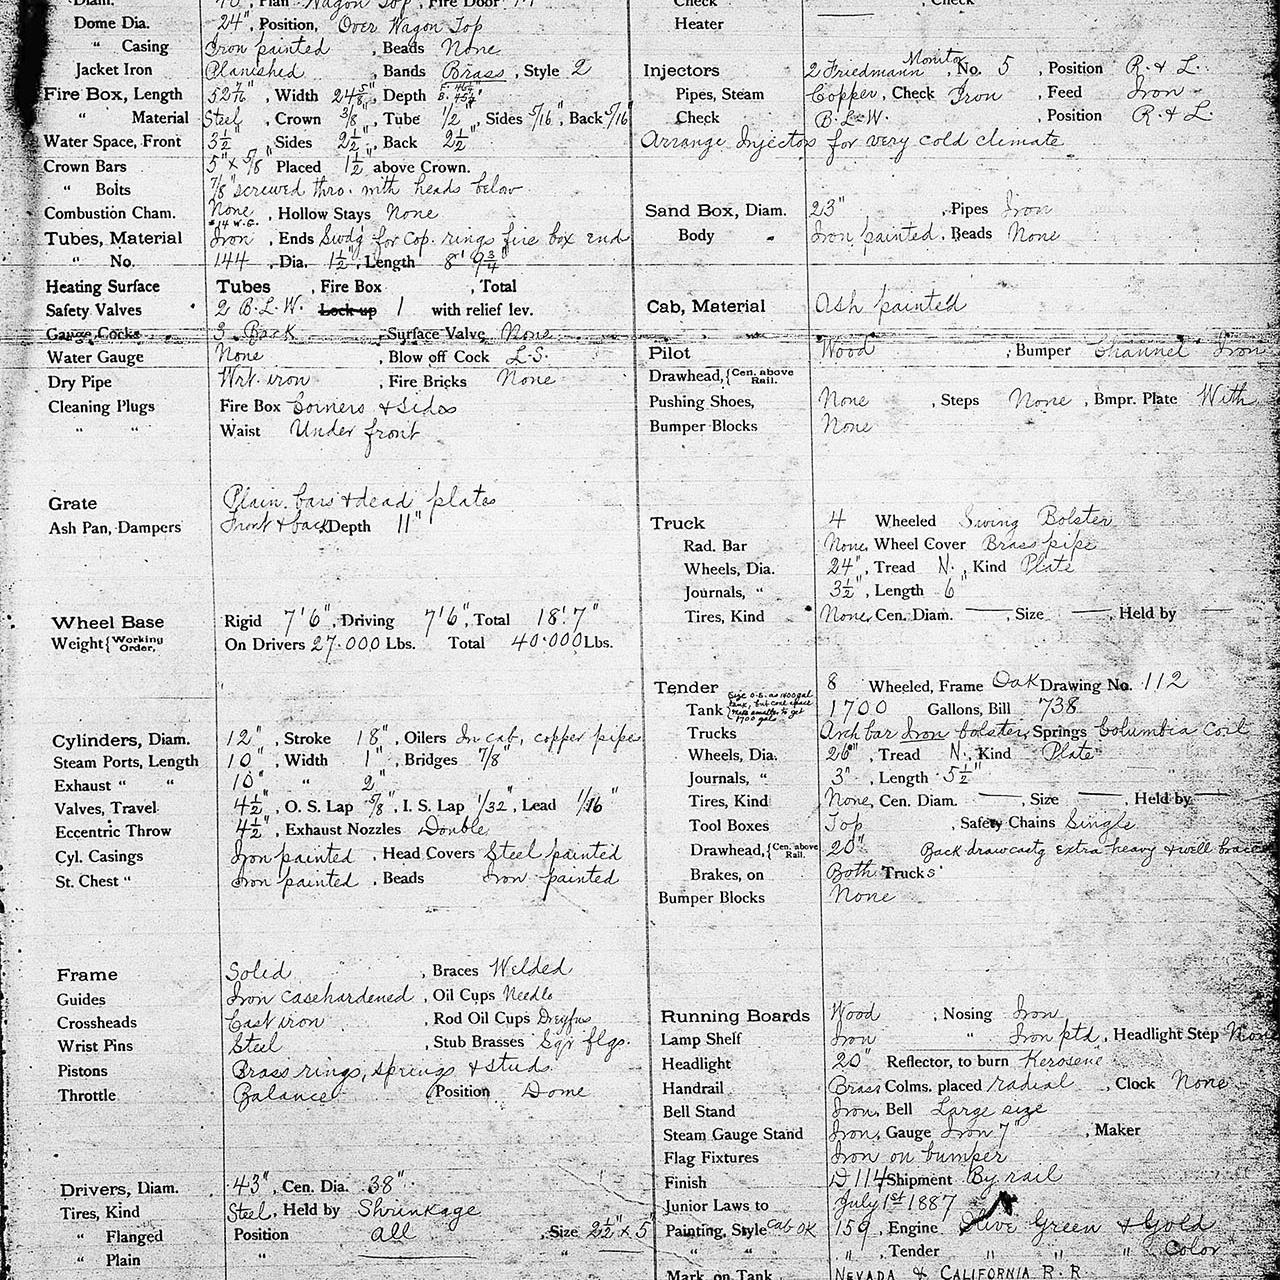 Diam. 40", Plan Wagon Top, Fire Door
Dome Dia. 24", Position, Over Wagon Top
" Casing Iron painted, Beads None
Jacket Iron Planished, Bands Brass, Style 2
Fire Box, Length 52 7/16", Width 24 5/8", Depth F. B.
" Material Steel, Crown 3/8, Tube 1/2", Sides 5/16", Back 5/16"
Water Space, Front 3 1/2", Sides 2 1/2", Back 2 1/2"
Crown Bars 5" x 5/8" Placed 1 1/2" above Crown.
" Bolts 7/8" screwed thro. with heads below
Combustion Cham. None, Hollow Stays None
#14 W.G.
Tubes, Material Iron, Ends Swdg for Cop. rings fire box end
" No. 144, Dia. 1 1/2", Length 8' 9 3/4"
Heating Surface Tubes, Fire Box, Total
Safety Valves 2 B.L.W. Lock-up 1 with relief lev.
Gauge Cocks 3 Back, Surface Valve None
Water Gauge None, Blow off Cock L.S.
Dry Pipe Wrt. iron, Fire Bricks None
Cleaning Plugs Fire Box Corners & Sides
" " Waist Under front
Grate Plain bars & dead plates
Ash Pan, Dampers Front & back Depth 11"
Wheel Base Rigid 7' 6", Driving 7' 6", Total 18' 7"
Weight { Working Order, On Drivers 27.000 Lbs. Total 40.000 Lbs.
Cylinders, Diam. 12", Stroke 18", Oilers In cab, copper pipe
Steam Ports, Length 10", Width 1", Bridges 7/8"
Exhaust " " 10" " 2"
Valves, Travel 4 1/2", O. S. Lap 5/8", I. S. Lap 1/32", Lead 1/16"
Eccentric Throw 4 1/2", Exhaust Nozzles Double
Cyl. Casings Iron painted, Head Covers Steel painted
St. Chest " Iron painted, Beads Iron painted
Frame Solid, Braces Welded
Guides Iron casehardened, Oil Cups Needle
Crossheads Cast iron, Rod Oil Cups Dreyfus
Wrist Pins Steel, Stub Brasses Sqr flgs.
Pistons Brass rings, springs & studs
Throttle Balance Position Dome
Drivers, Diam. 43", Cen. Dia. 38"
Tires, Kind Steel, Held by Shrinkage
" Flanged Position all, Size 2 1/2" x 5"
" Plain " "
Check, Check
Heater
Injectors 2 Friedmann Monitor, No. 5, Position R. & L.
Pipes, Steam Copper, Check Iron, Feed Iron
Check B.L.W., Position R. & L.
Arrange Injectors for very cold climate
Sand Box, Diam. 23", Pipes Iron
Body Iron painted, Beads None
Cab, Material Ash painted
Pilot Wood, Bumper Channel Iron
Drawhead, { Cen. above Rail.
Pushing Shoes, None, Steps None, Bmpr. Plate With
Bumper Blocks None
Truck 4 Wheeled Swing Bolster
Rad. Bar None, Wheel Cover Brass pipe
Wheels, Dia. 24", Tread N., Kind Plate
Journals, " 3 1/2", Length 6"
Tires, Kind None, Cen. Diam. —, Size —, Held by —
Tender 8 Wheeled, Frame Oak Drawing No. 112
Size O.S. as 1400 gal tank, but coal space made smaller to get 1700 gal.
Tank 1700 Gallons, Bill 738
Trucks Arch bar Iron bolster, Springs Columbia Coil
Wheels, Dia. 26", Tread N., Kind Plate
Journals, " 3", Length 5 1/2"
Tires, Kind None, Cen. Diam. —, Size —, Held by —
Tool Boxes Top, Safety Chains Single
Drawhead, { Cen. above Rail. 20" Back draw castg extra heavy & well
Brakes, on Both Trucks
Bumper Blocks None
Running Boards Wood, Nosing Iron
Lamp Shelf Iron " Iron ptd, Headlight Step None
Headlight 20" Reflector, to burn Kerosene
Handrail Brass Colms. placed radial, Clock None
Bell Stand Iron, Bell Large size
Steam Gauge Stand Iron, Gauge Iron 7", Maker
Flag Fixtures Iron on bumper
Finish D 114 Shipment By rail
Junior Laws to July 1st 1887
Painting, Style Cab OK 159, Engine Olive Green & Gold
" " ", Tender " " " Color
Mark, on Tank NEVADA & CALIFORNIA R.R.